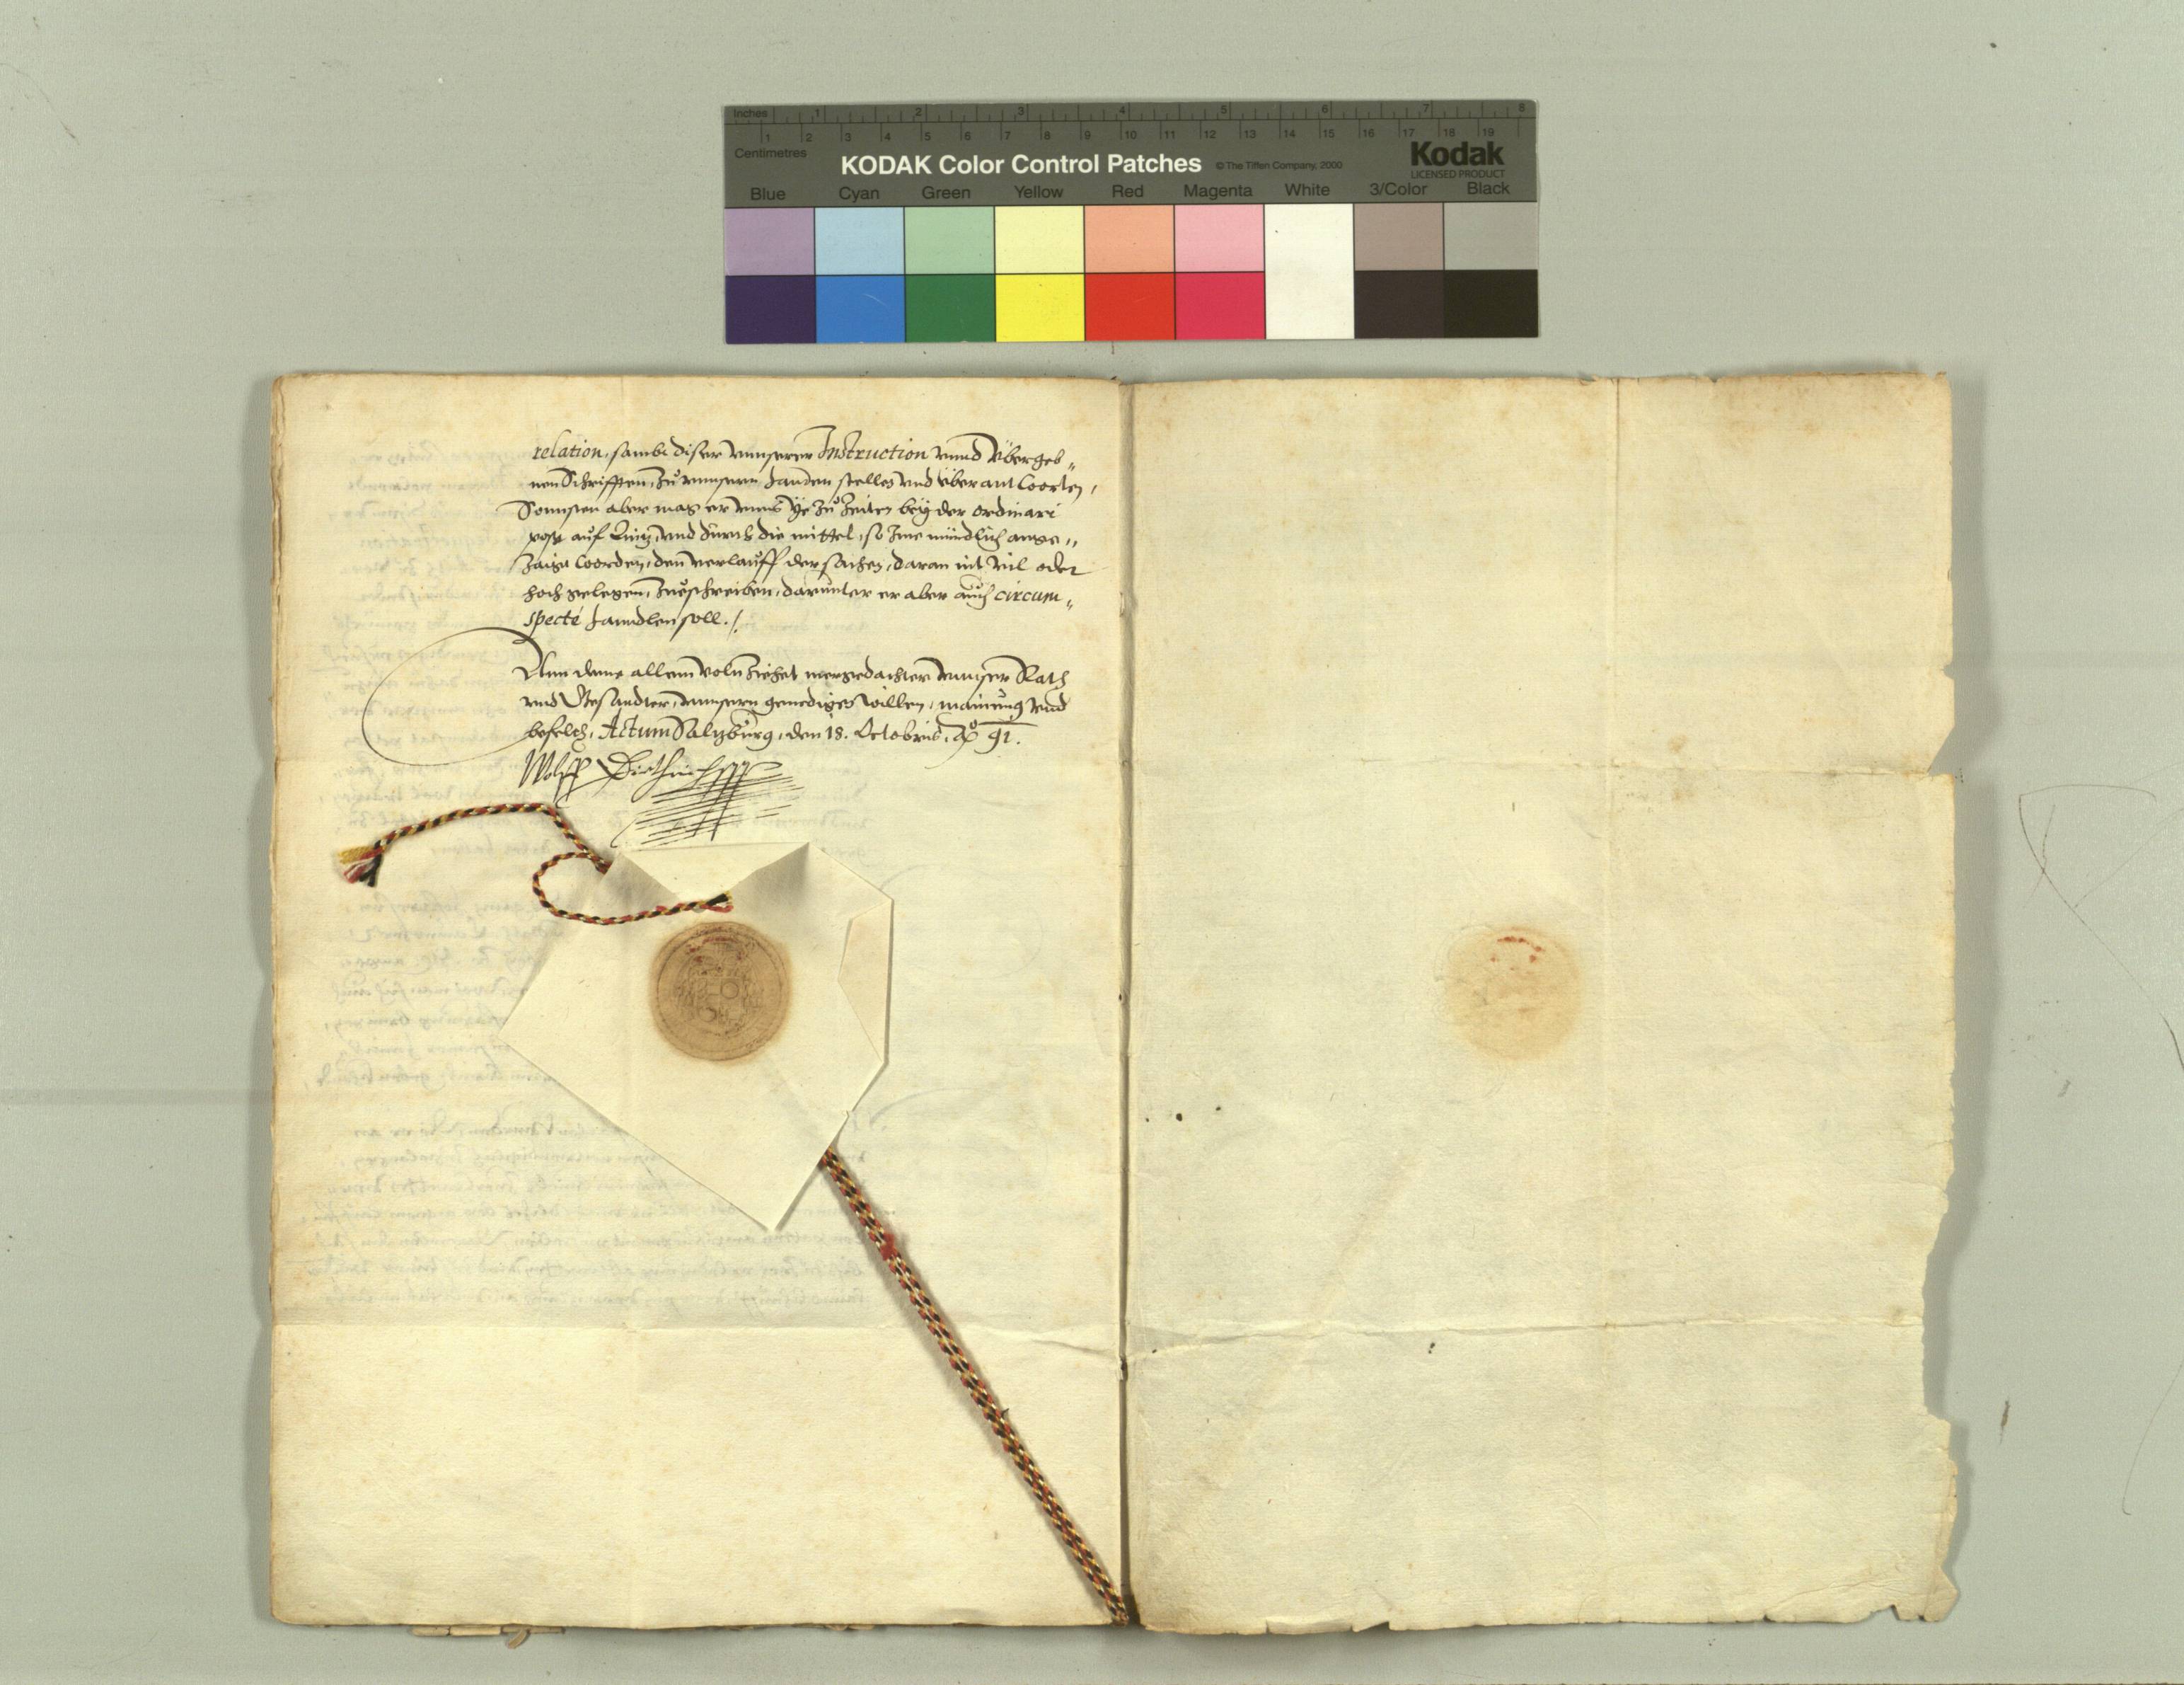 Inches 1 2 3 4 5 6 7 8
1 2 3 4 5 6 7 8 9 10 11 12 13 14 15 16 17 18 19
Centimetres
KODAK Color Control Patches © The Tiffen Company, 2000 Kodak
LICENSED PRODUCT
Blue Cyan Green Yellow Red Magenta White 3/Color Black
relation, sambt diser unnserer Instruction unnd Übergeb„
nen Schrifften, zu unnsern hannden stellen und überantworten,
Sonnsten aber mag er unns ye zu Zeiten bey der ordinari
post auf Linz, und durch die mittel, so Ime mündlich ange„
zaigt worden, den verlauff der sachen, daran nit vil oder
hoch gelegen, zueschreiben, darunter er aber auch circum„
specte hanndlen soll./.
Ann deme allem volnziehet mergedachter unnser Rath
und Gesandter, unnsern genedigen willen, mainung und
befelch, Actum Salzburg, den 18. Octobris, Ao 91.
Wolff Dietrich